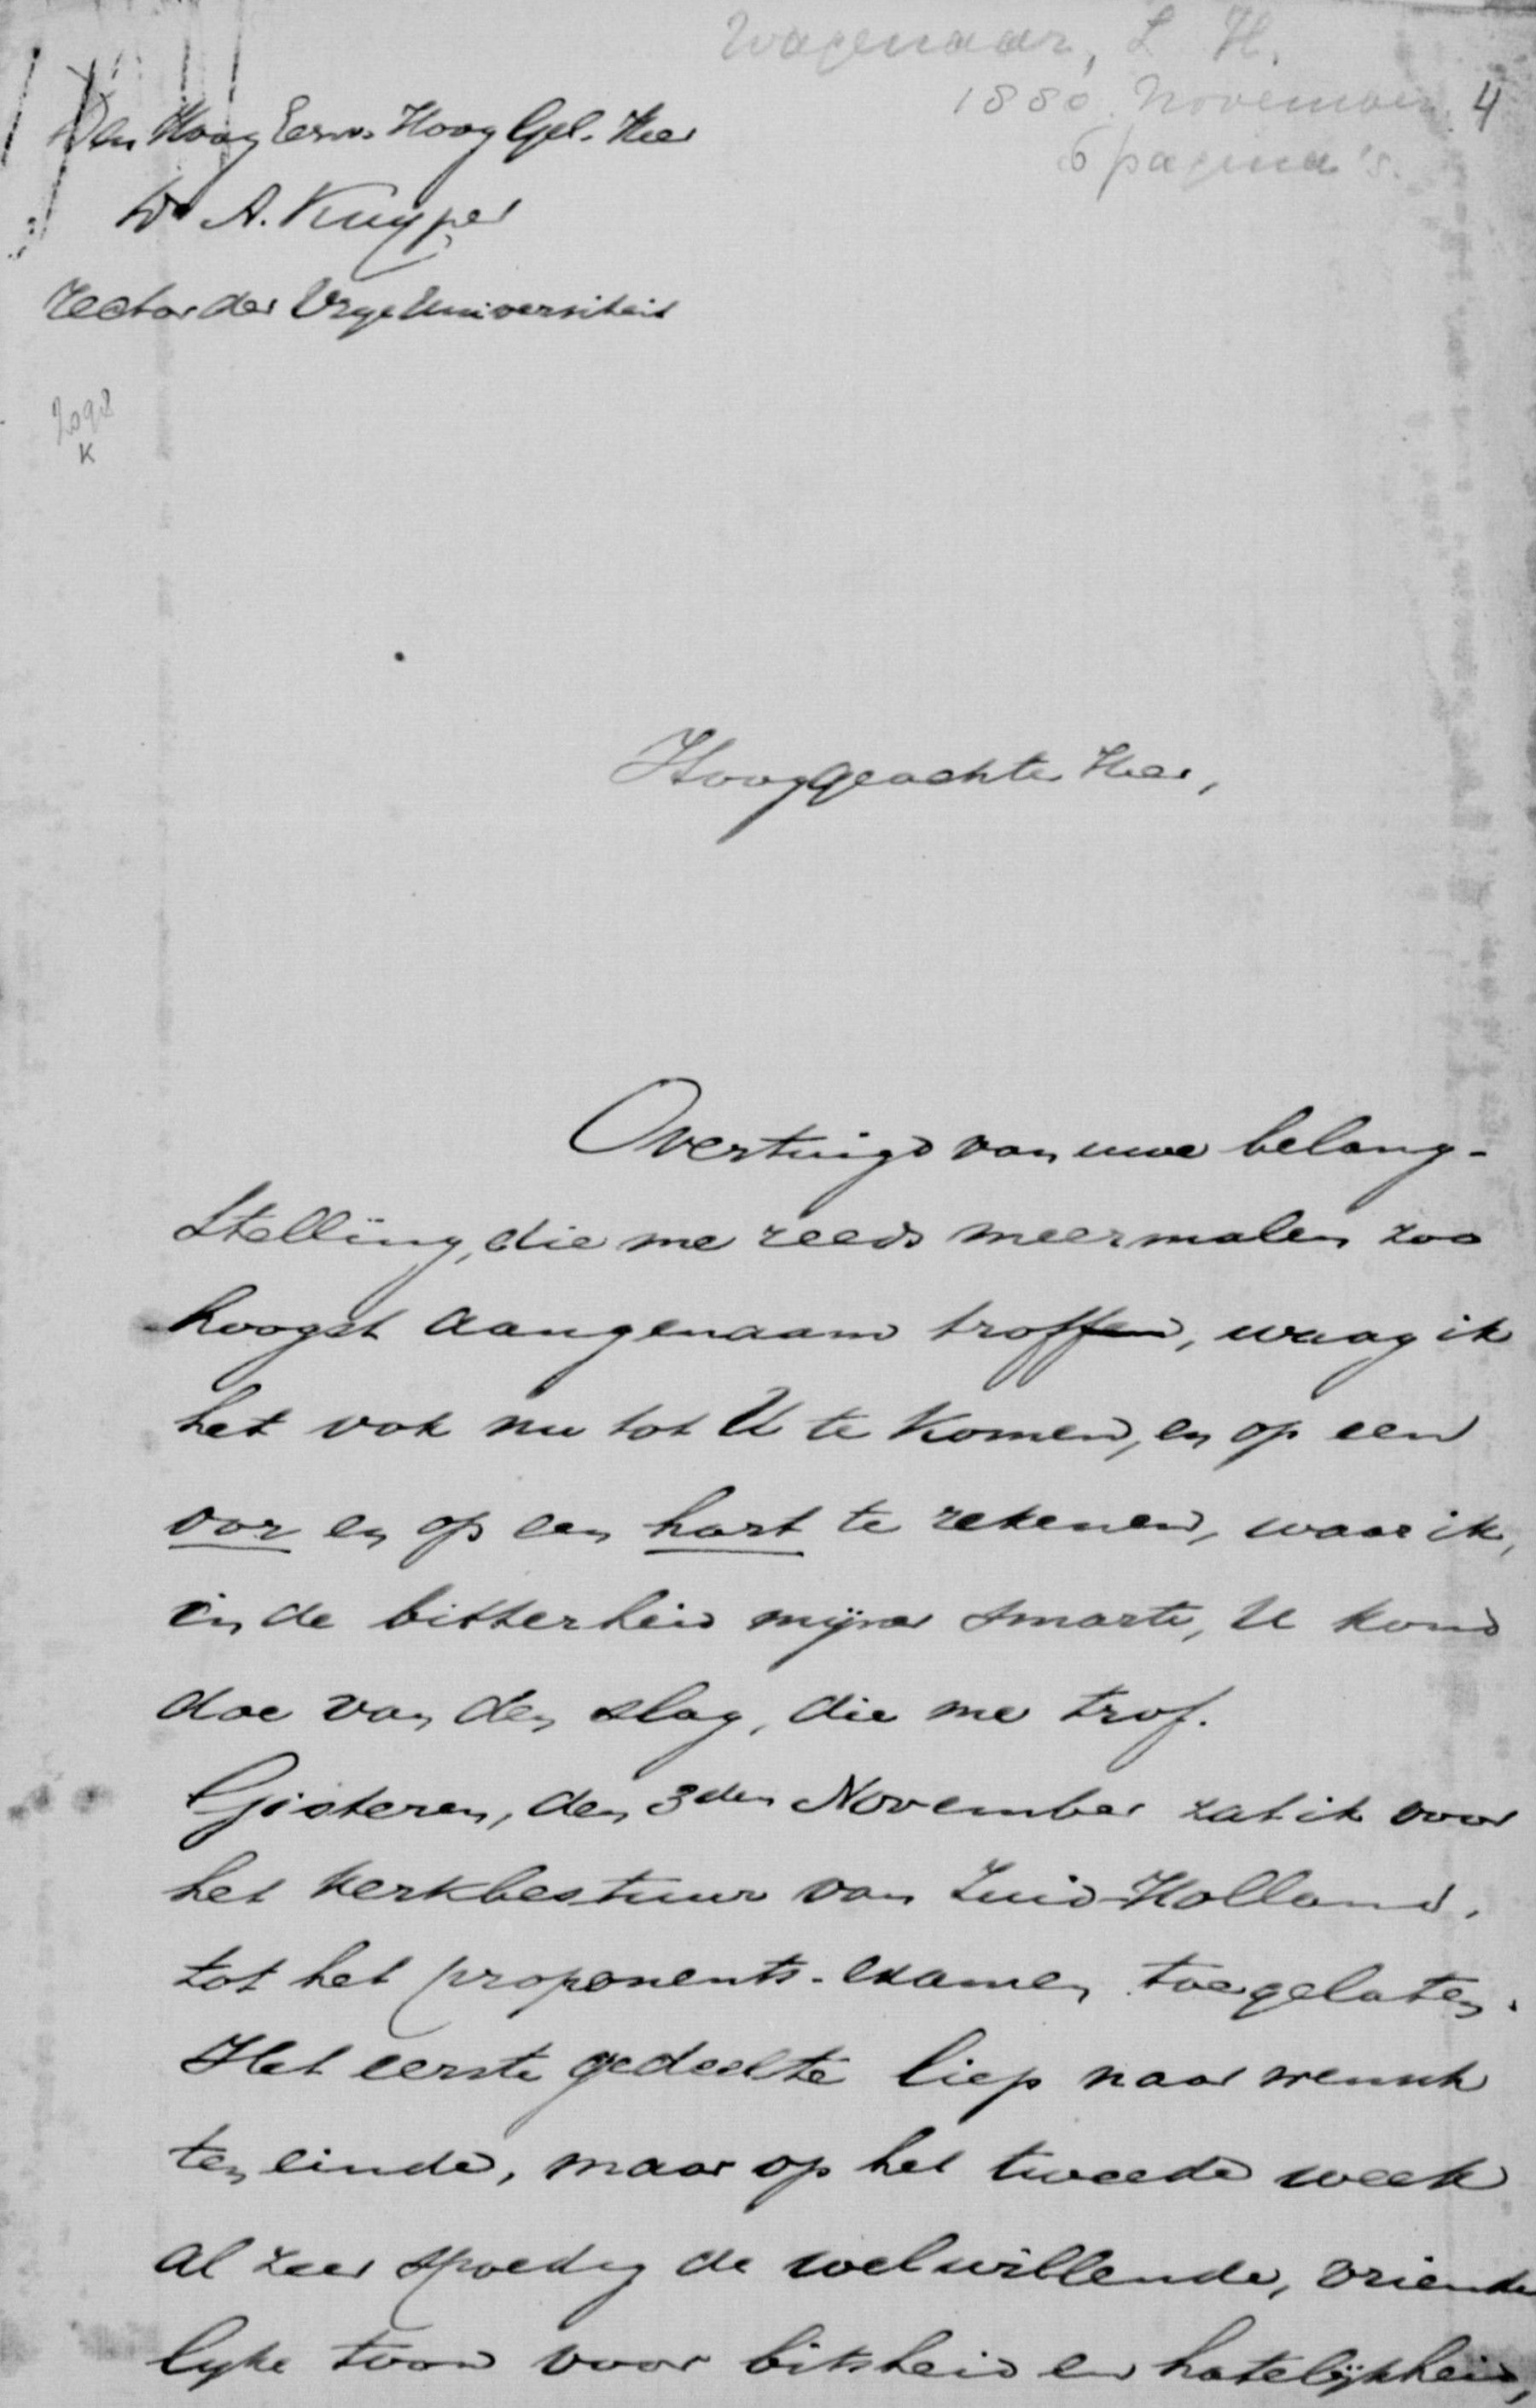 Wagenaar, L H.
1880. November 4
6 pagina's.
Den Hoog Eerw. Hoog Gel. Heer
Dr A. Kuyper
rector der Vrije Universiteit
2098
K
Hooggeachte Heer,
Overtuigd van uwe belang-
stelling, die me reeds meermalen zoo
hoogst aangenaam troffen, waag ik
het ook nu tot U te komen, en op een
oor en op een hart te rekenen, waar ik,
in de bitterheid mijner smarte, U kond
doe van den slag, die me trof.
Gisteren, den 3den November zat ik voor
het kerkbestuur van Zuid-Holland,
tot het proponents-examen toegelaten.
Het eerste gedeelte liep naar wensch
ten einde, maar op het tweede week
al zeer spoedig de welwillende, vriende
lijke toon voor bitsheid en hatelijkheid,